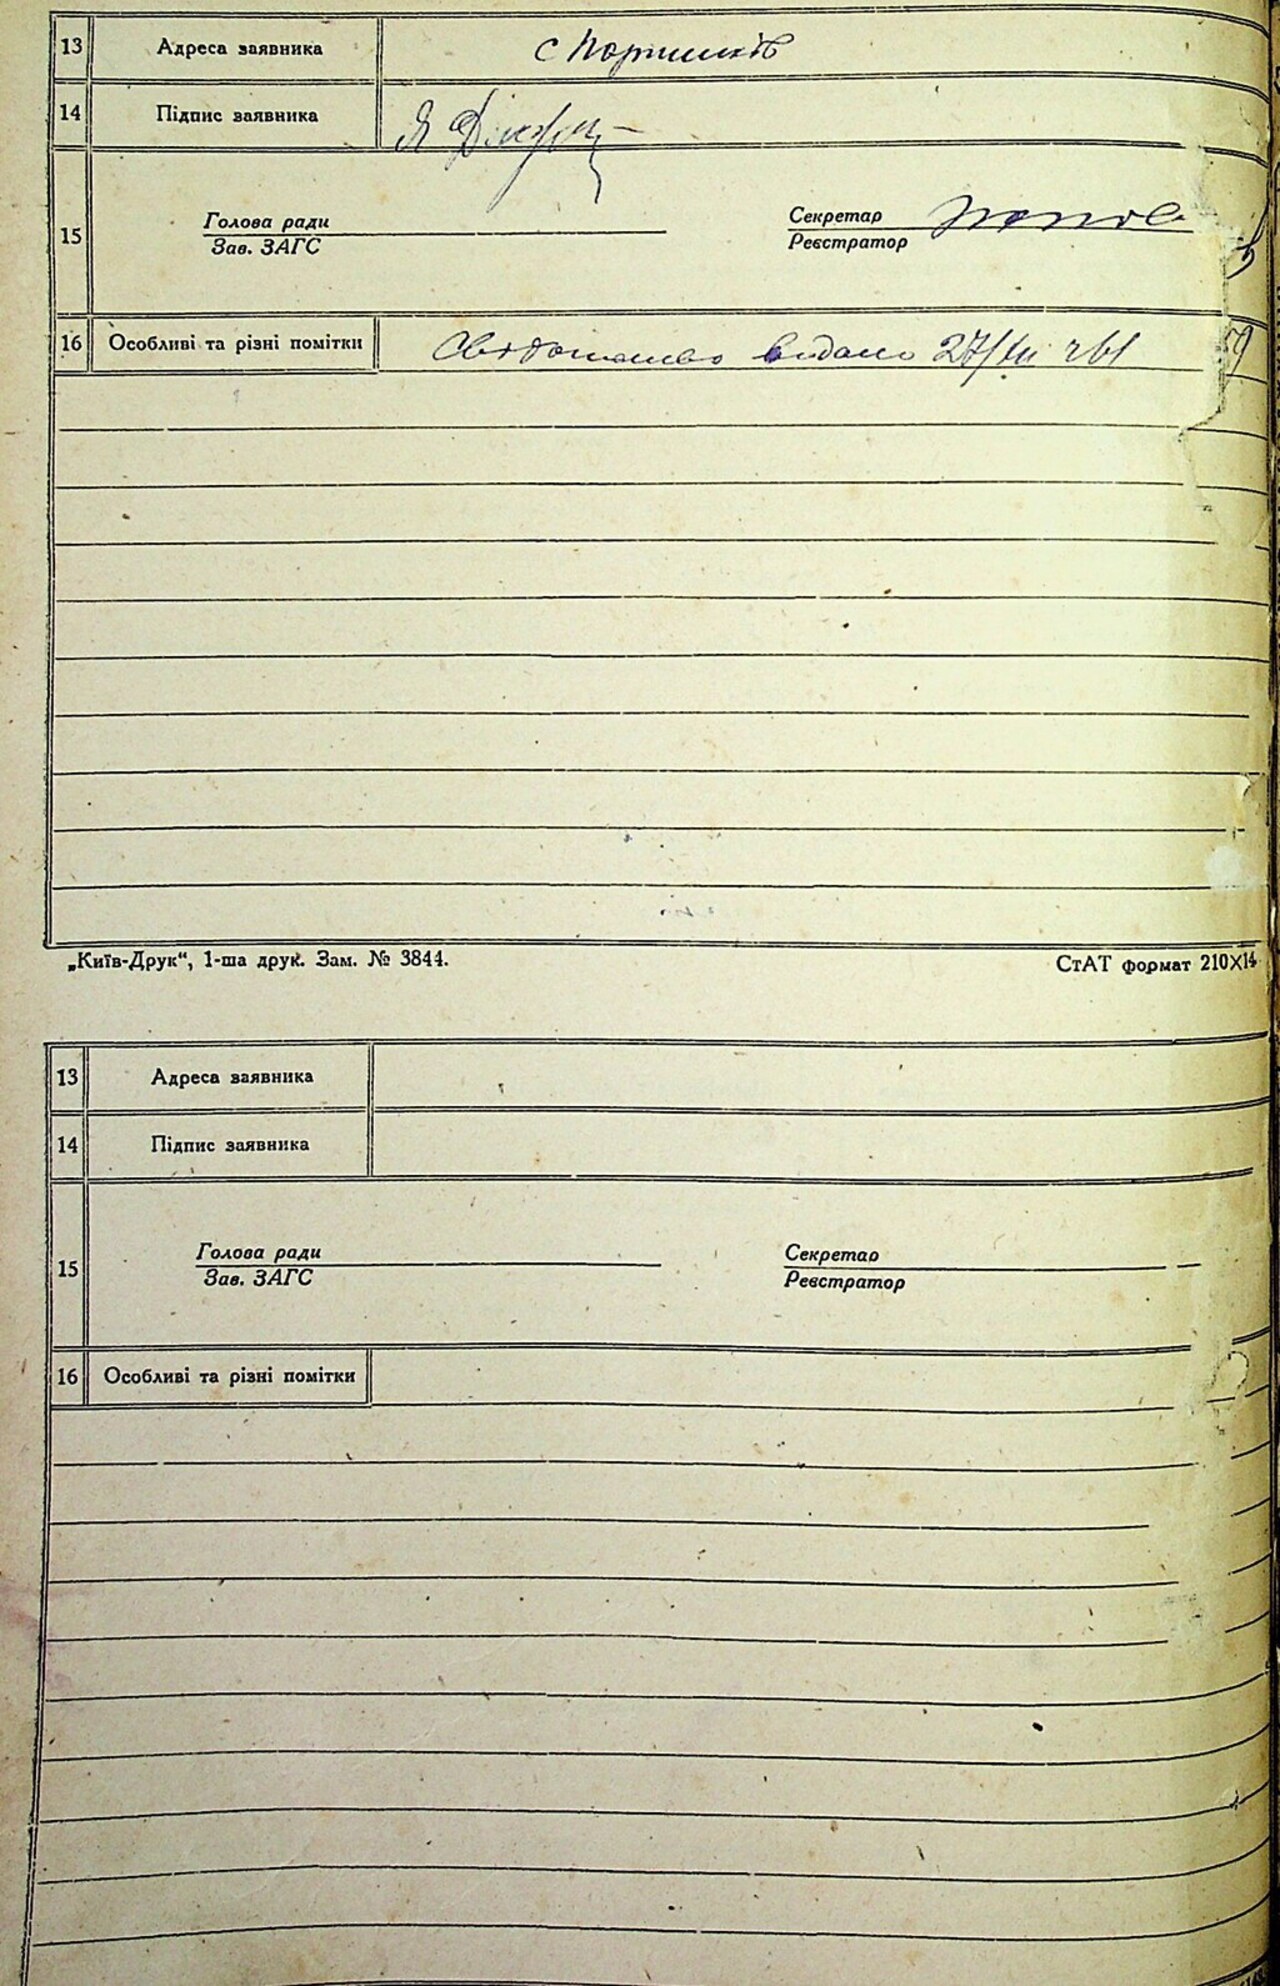 13 Адреса заявника с
14 Підпис заявника Я
15 Голова ради Секретар
Зав. ЗАГС Реєстратор
16 Особливі та різні помітки Свідоцтво видано
„Київ-Друк“, 1-ша друк. Зам. № 3844. СтАТ формат 210X14
13 Адреса заявника
14 Підпис заявника
15 Голова ради Секретар
Зав. ЗАГС Реєстратор
16 Особливі та різні помітки